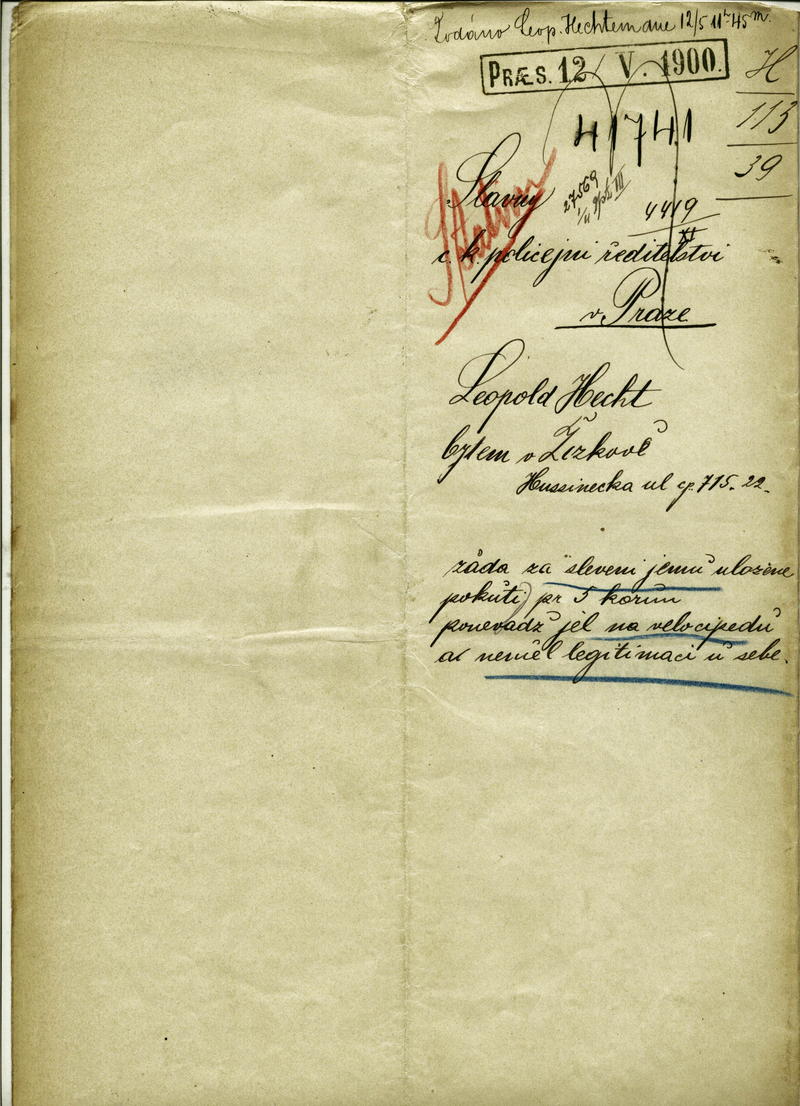 Podáno Leop. Hechtem dne 12/5 11 h 45 m.
PRÆS. 12 V. 1900.
H
113
39
41741
27569
4419
XI
Slavný
c. k. policejni ředitelstvi
v Praze
Leopold Hecht
bytem v Žizkově
Hussinecka ul čp. 715-22-
žáda za sleveni jemu uložene
pokuti pr 5 korun
ponevadž jel na velocipedu
a nemněl legitimaci u sebe.